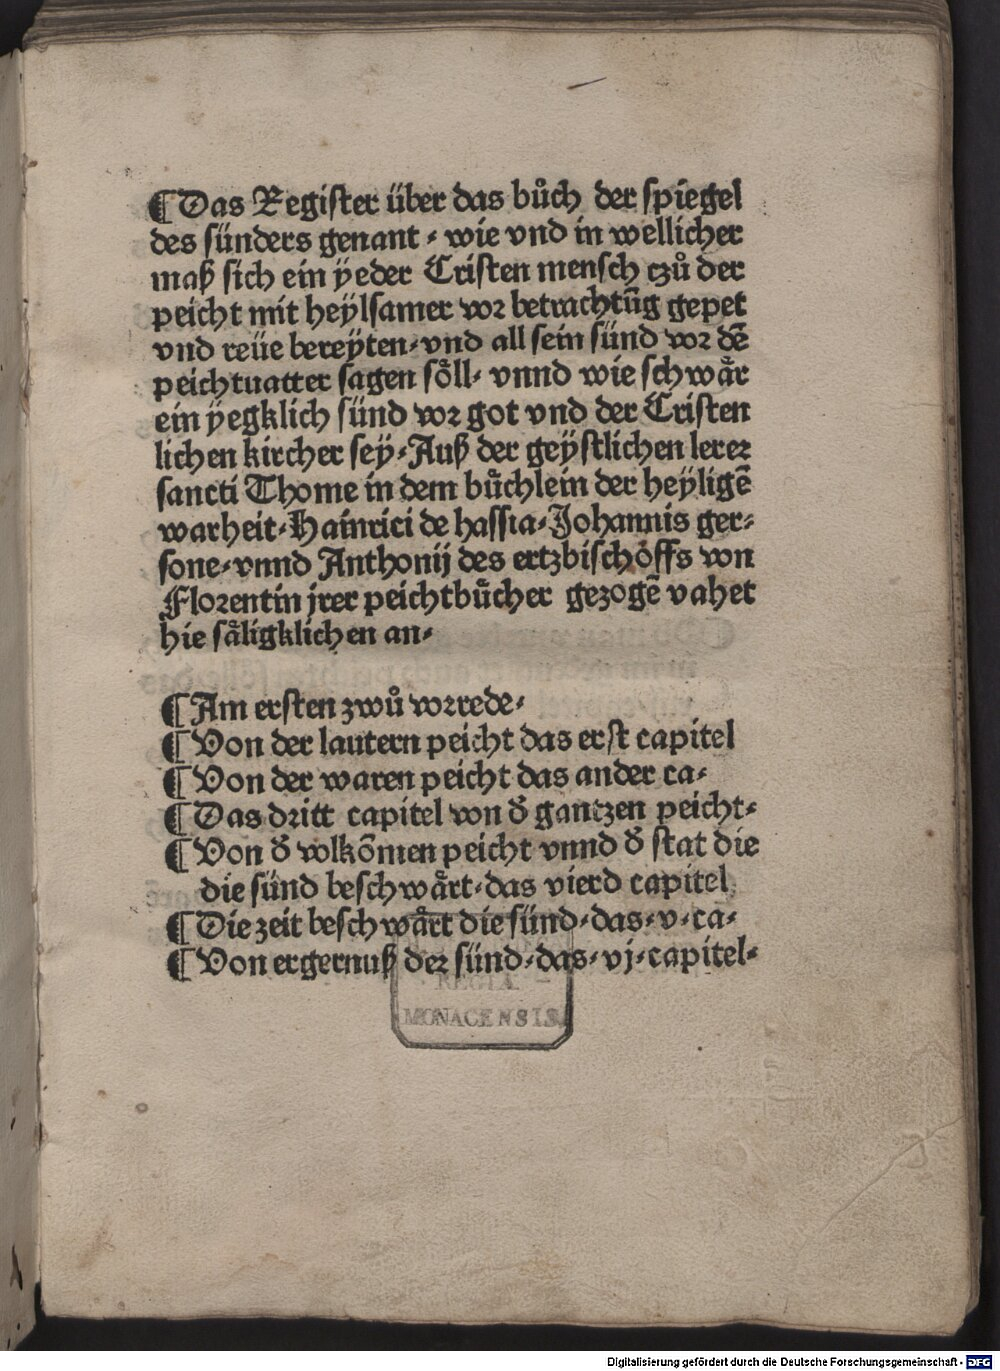 ¶ Das Register über das bůch der spiegel
des sünders genant · wie vnd in wellicher
maß sich ein ÿeder Cristen mensch czů der
peicht mit heÿlsamer vor betrachtūg gepet
vnd reüe bereÿten · vnd all sein sünd vor dē
peichtuatter sagen soͤll · vnnd wie schwaͤr
ein ÿegklich sünd vor got vnd der Cristen
lichen kircher seÿ · Auß der geÿstlichen lerer
sancti Thome in dem buͤchlein der heÿligē
warheit · Hainrici de hassia · Johannis ger⸗
sone · vnnd Anthonij des ertzbischoffs von
Florentin jrer peichtbuͤcher gezogē vahet
hie saͤligklichen an ·
¶ Am ersten zwů vorrede ·
¶ Von der lautern peicht das erst capitel
¶ Von der waren peicht das ander ca ·
¶ Das dritt capitel von d̄ gantzen peicht ·
¶ Von d̄ volkōmen peicht vnnd d̄ stat die
die sünd beschwaͤrt · das vierd capitel
¶ Die zeit beschwaͤrt die sünd · das · v · ca ·
¶ Von ergernuß der sünd · das · vj · capitel ·
REGIA
MONACENSIS
Digitalisierung gefördert durch die Deutsche Forschungsgemeinschaft - DFG